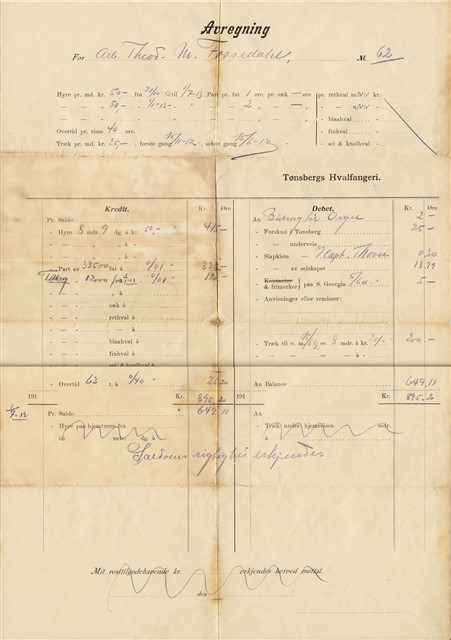 Avregning
For Arb. Theod. M. Fossedahl, № 62
Hyre pr. md. kr. 50,- fra 20/10-12 til 1/7-13 Part pr. fat 1 øre, pr. sæk — øre pr. rethval m. 5½" kr.
— — — 50,- 2 — — u. 5½"
— blaahval
— finhval
— sei & knølhval
Overtid pr. time 40 øre.
Træk pr. md. kr. 25,- første gang 15/11-12, sidste gang
Tønsbergs Hvalfangeri.
Kredit. Kr. Øre
Debet. Kr. Øre
Pr. Saldo
An Bidrag til Orgel 2 -
- Hyre 8 mdr. 9 dg. à kr. 50,- 415 -
- Forskud i Tønsberg 25 -
- — underveis
- Slapkiste - Kapt. Thorsen 0,50
- Part av 33500 fat à 0/01 335 -
- — av selskapet 13,79
Tillæg - 12000 0/01 120 -
- Kontanter & frimerker paa S. Georgia 5 -
- — - sæk à
- Anvisninger eller remisser:
- — - rethval à
- — - blaahval à
- Træk til o. m. = 8 mdr. à kr. 25/- 200 -
- — - finhval à
- — - sei & knølhval à
- Overtid 63 t. à 0/40 25 20
An Balance 649,11
191 Kr. 895 20
191 Kr. 895,20
1/7-13. Pr. Saldo 649 11
An
- Hyre paa hjemturen fra
- Træk under hjemreisen mdr.
til mdr. dg. à
à
Saldoens rigtighet erkjendes.
Mit resttilgodehavende kr. erkjendes herved mottat.
den